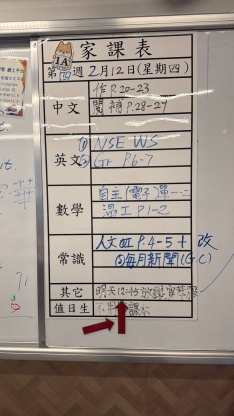 家課表
1A
第四週 2月12日(星期四)
中文
作 P.20-23
閱補 P.28-29
英文
① NSE WS
② Gr P.6-7
數學
自主(電子)單一二
溫工 P.1-2
常識
人文 P.4-5 + 改
②每月新聞(G.C)
其它
明天12:45放學
值日生